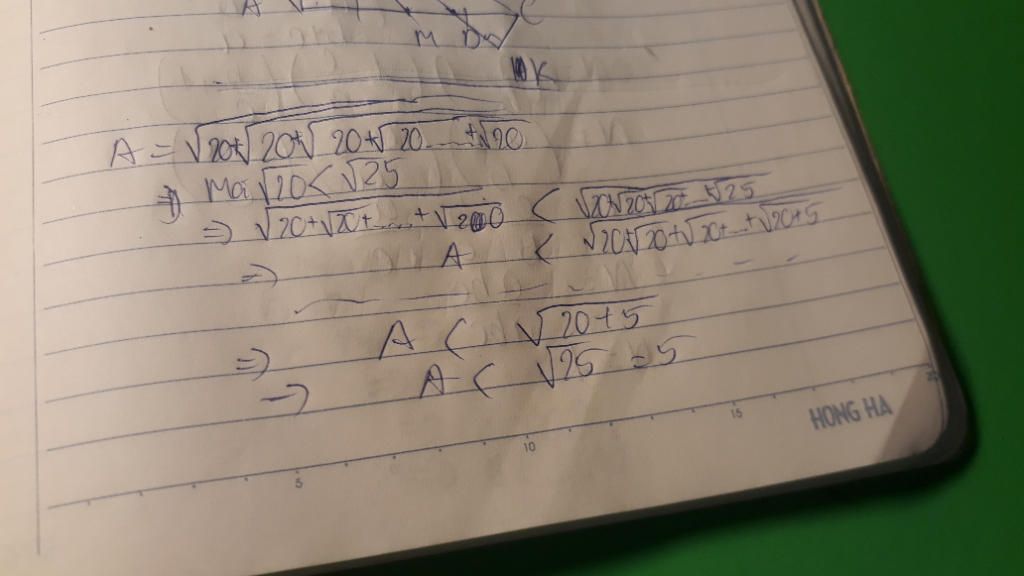 A C
M D
K
A = √20+√20+√20+√20.....+√20
=> Mà √20 < √25
=> √20+√20+....+√20 < √20+√20+√20+...+√25
=> A < √20+√20+√20+...+√20+5
=> A < √20+5
=> A < √25 = 5
5 10 15 20
HONG HA